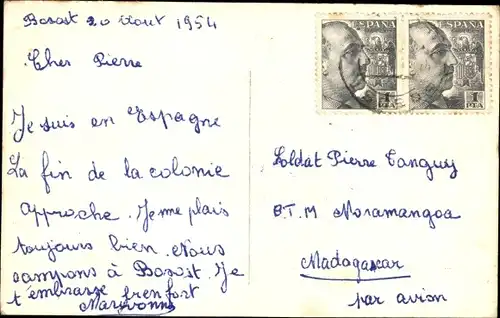 Bosost 20 Aout 1954
Cher Pierre
Je suis en Espagne
La fin de la colonie
approche. Je me plais
toujours bien. Nous
campons à Bosost. Je
t'embrasse fort
Maryvonne
ESPAÑA
1
PTA
ESPAÑA
1
PTA
Soldat Pierre Tanguy
B.T.M Moramangoa
Madagascar
par avion